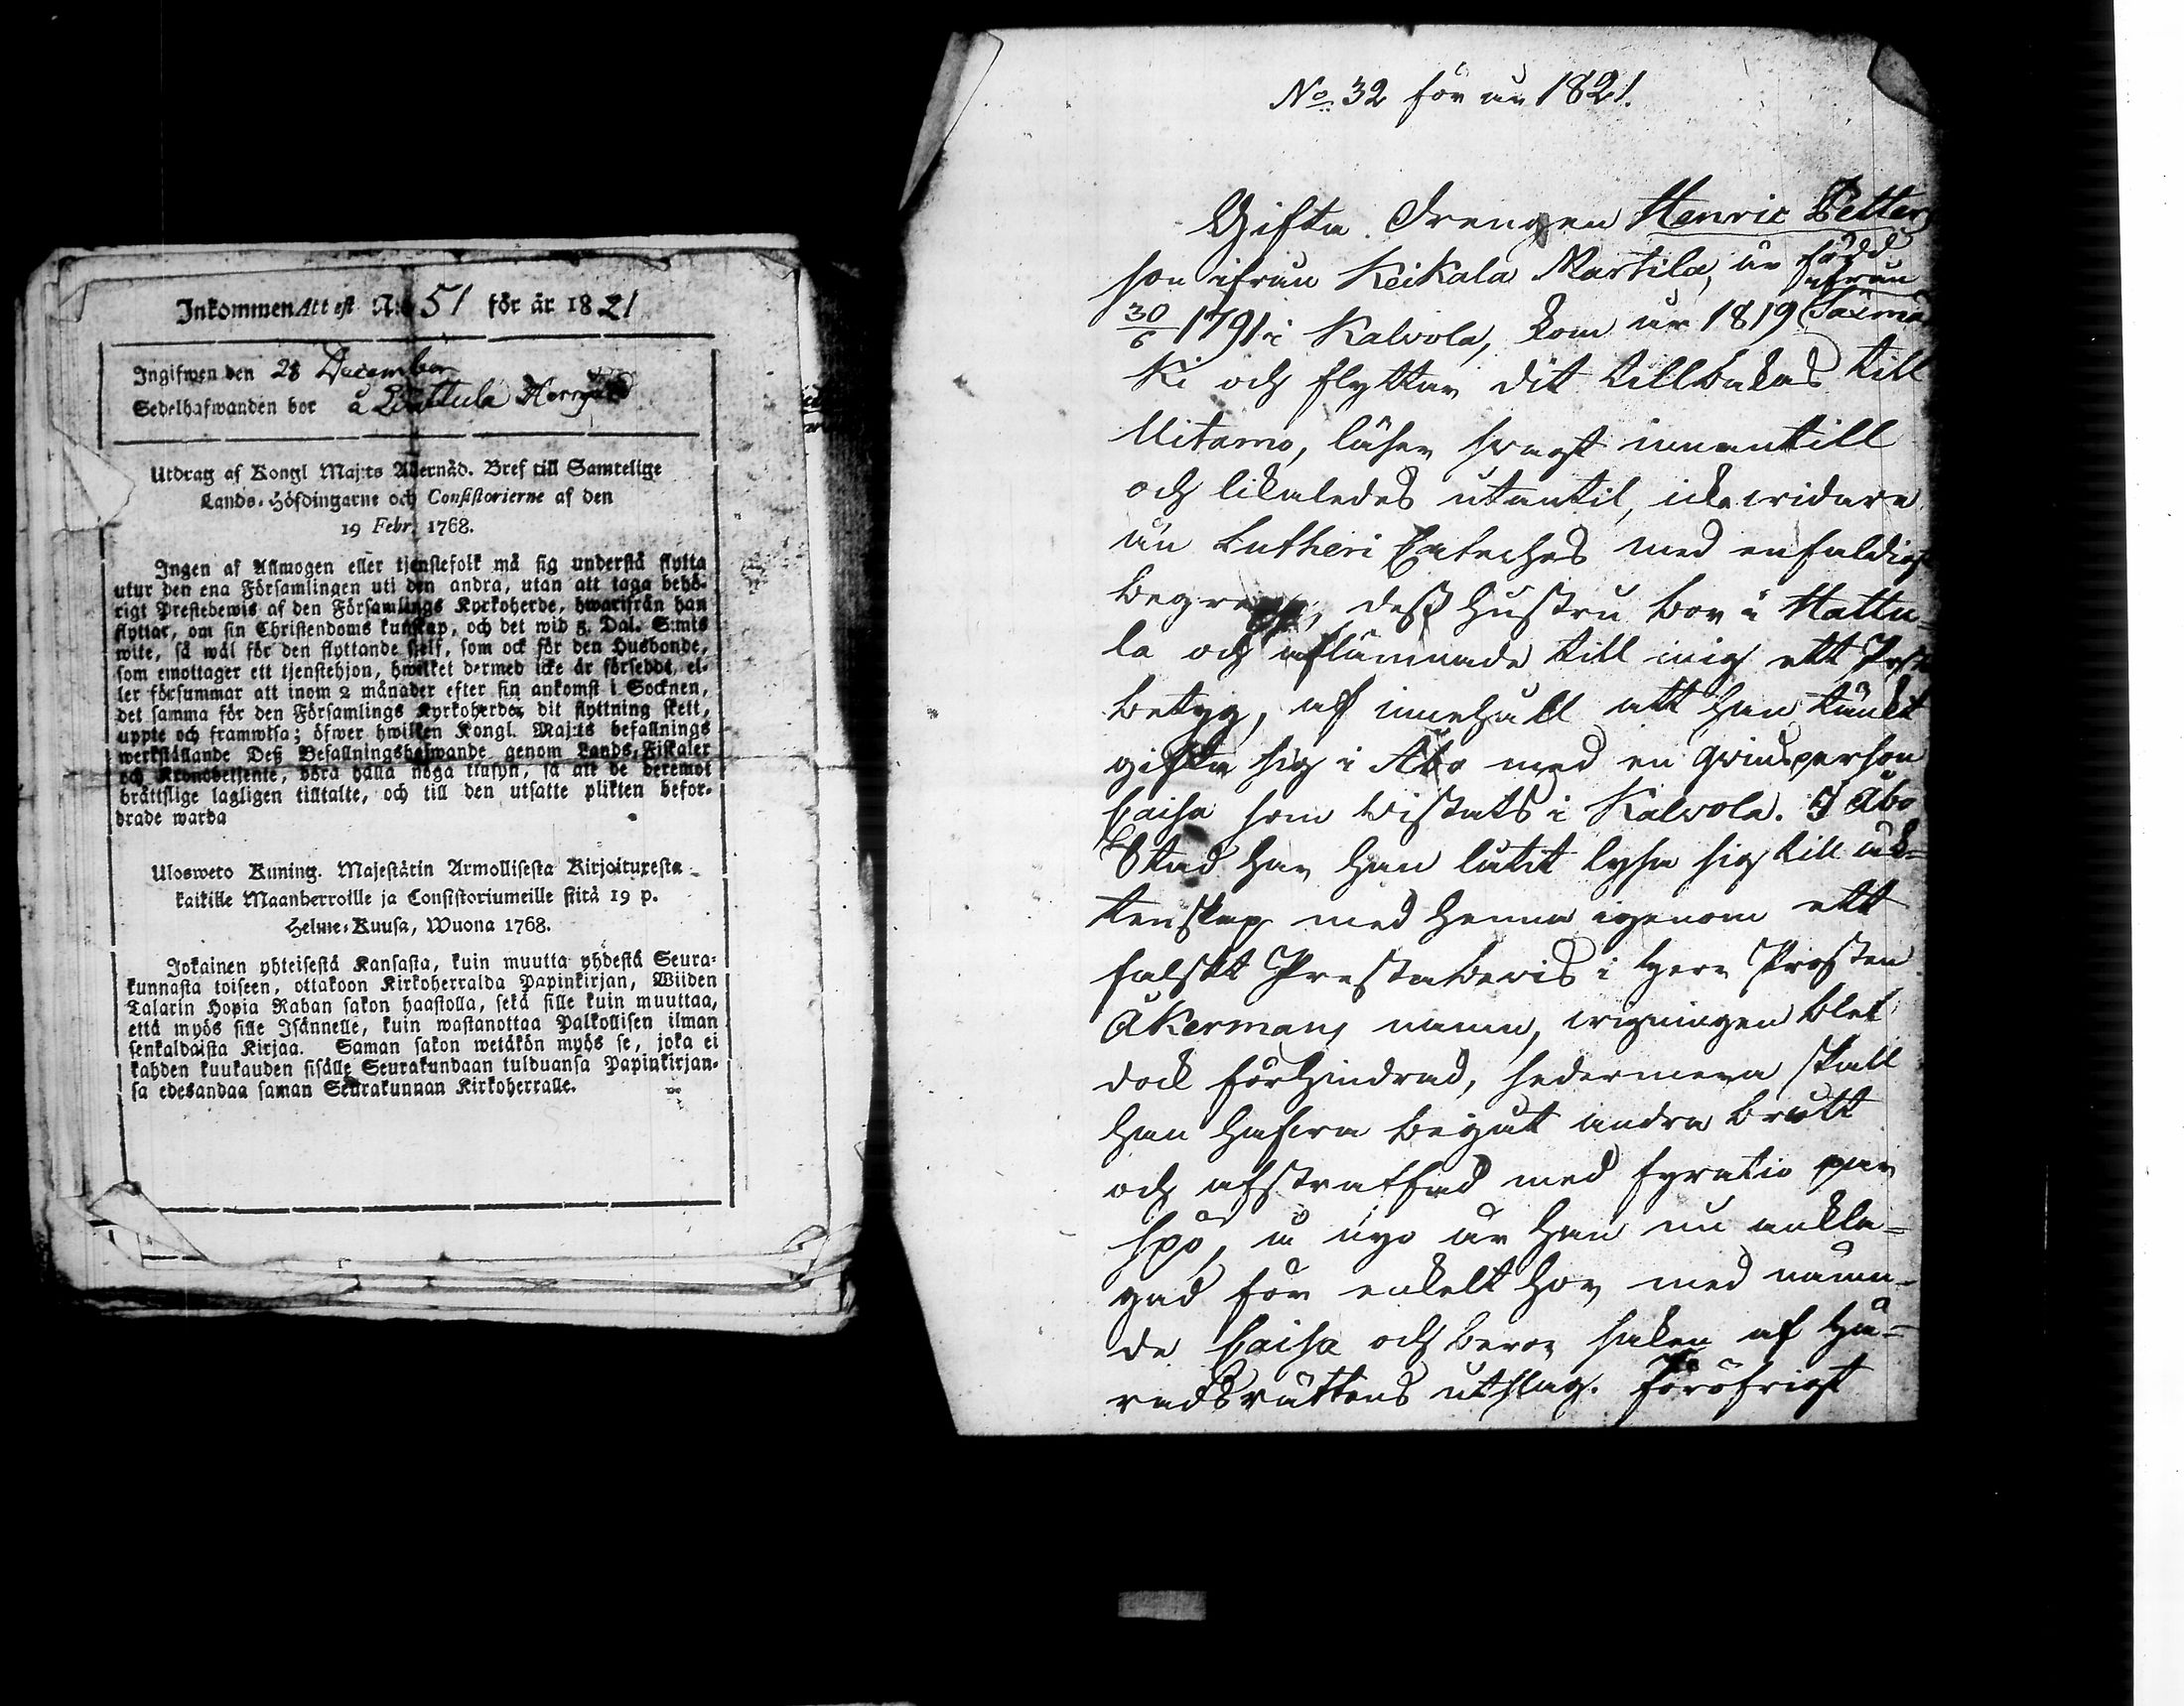 Inkommen Attest N:o 51 för år 1821
Ingifwen den 28 December
Sedelhafwanden bor å Herrgård
Utdrag af Kongl Maj:ts Allernåd. Bref till Samtelige
Lands-Höfdingarne och Consistorierne af den
19 Febr. 1768.
Ingen af Allmogen eller tjenstefolk må sig understå flytta
utur den ena Församlingen uti den andra, utan att taga behö-
rigt Prestebewis af den Församlings Kyrkoherde, hwarifrån han
flyttar, om sin Christendoms kunskap, och det wid 5. Dal. S:mts
wite, så wäl för den flyttande sjelf, som ock för den Husbonde,
som emottager ett tjenstehjon, hwilket dermed icke är förseddt, el-
ler försummar att inom 2 månader efter sin ankomst i Socknen,
det samma för den Församlings Kyrkoherde, dit flyttning skett,
uppte och framwisa; öfwer hwilken Kongl. Maj:ts befallnings
werkställande Deß Befallningshafwande genom Lands-Fiskaler
och Kronobetjente, böra hålla noga tilsyn, så att de deremot
bråttslige lagligen tilltalte, och till den utsatte plikten befor-
drade warda
Ulosweto Kuning. Majestätin Armollisesta Kirjoituresta
kaikille Maanherroille ja Consistoriumeille siitä 19 p.
Helme-Kuusa, Wuona 1768.
Jokainen yhteisestä Kansasta, kuin muutta yhdestä Seura-
kunnasta toiseen, ottakoon Kirkoherralda Papinkirjan, Wiiden
Talarin Hopia Rahan sakon haastolla, sekä sille kuin muuttaa,
että myös sille Isännelle, kuin wastanottaa Palkollisen ilman
senkaldaista Kirjaa. Saman sakon wetäkön myös se, joka ei
kahden kuukauden sisälle Seurakundaan tulduansa Papinkirjan-
sa edesandaa saman Seurakunnan Kirkoherralle.
No 32 för år 1821.
Gifta Drengen Henric Petter
son ifrån Keikala Martila, är född
30/6 1791 i Kalvola, kom år 1819 ifrån Säxmä
ki och flyttar dit tillbakas till
Uitamo, läser swagt innantill
och likaledes utantil, icke widare
än Lutheri Cateches med enfaldigt
begrepp, deß hustru bor i Hattu-
la och aflämnade till mig ett Preste
betyg, af innehåll att han tänkt
gifta sig i Åbo med en qvinsperson
Caisa som wistats i Kalvola. I Åbo
Stad har han låtit lysa sig till äk-
tenskap med henna igenom ett
falskt Prestabevis i Herr Prosten
Åkermans namn, wigningen blef
dock förhindrad, sedermera skall
han hafwa begåt andra brott
och afstraffad med fyratio par
spö, å nyo är han nu ankla-
gad för enkelt hor med nämn-
de Caisa och beror saken af Hä-
radsrättens utslag. Föröfrigt